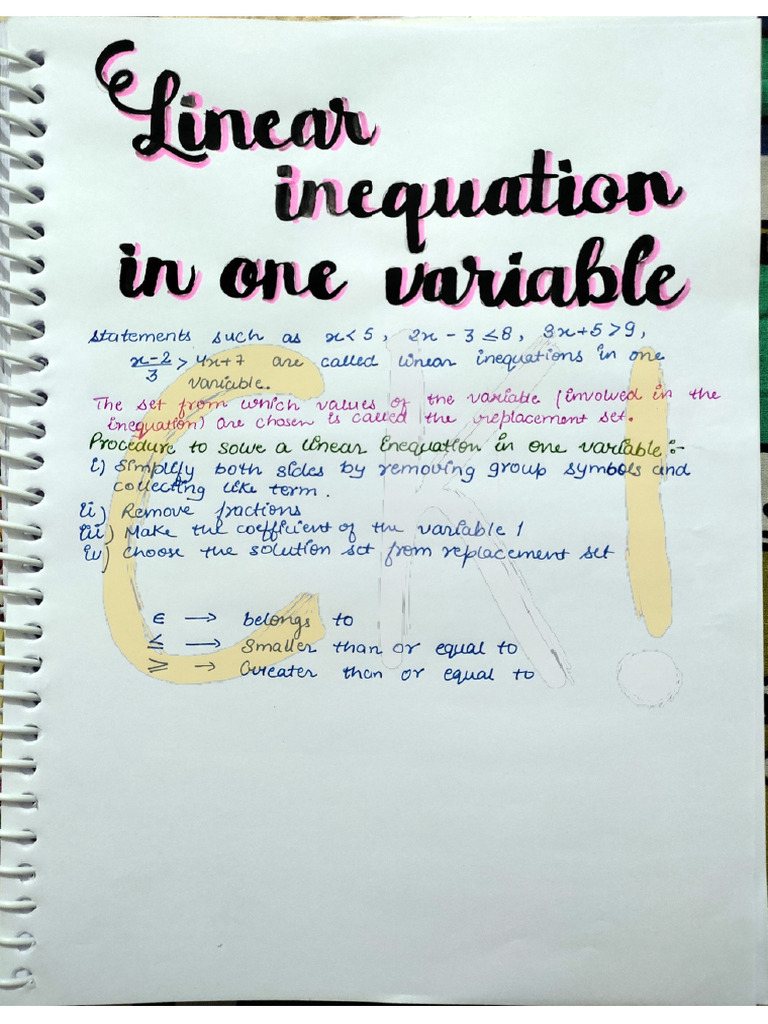 Linear
inequation
in one variable
statements such as x < 5, 2x - 3 ≤ 8, 3x + 5 > 9,
x-2/3 > 4x + 7 are called linear inequations in one
variable.
The set from which values of the variable (involved in the
inequation) are chosen is called the replacement set.
Procedure to solve a linear inequation in one variable :-
i) Simplify both sides by removing group symbols and
collecting like term.
ii) Remove fractions
iii) Make the coefficient of the variable 1
iv) choose the solution set from replacement set
∈ → belongs to
≤ → Smaller than or equal to
≥ → Greater than or equal to
CK!